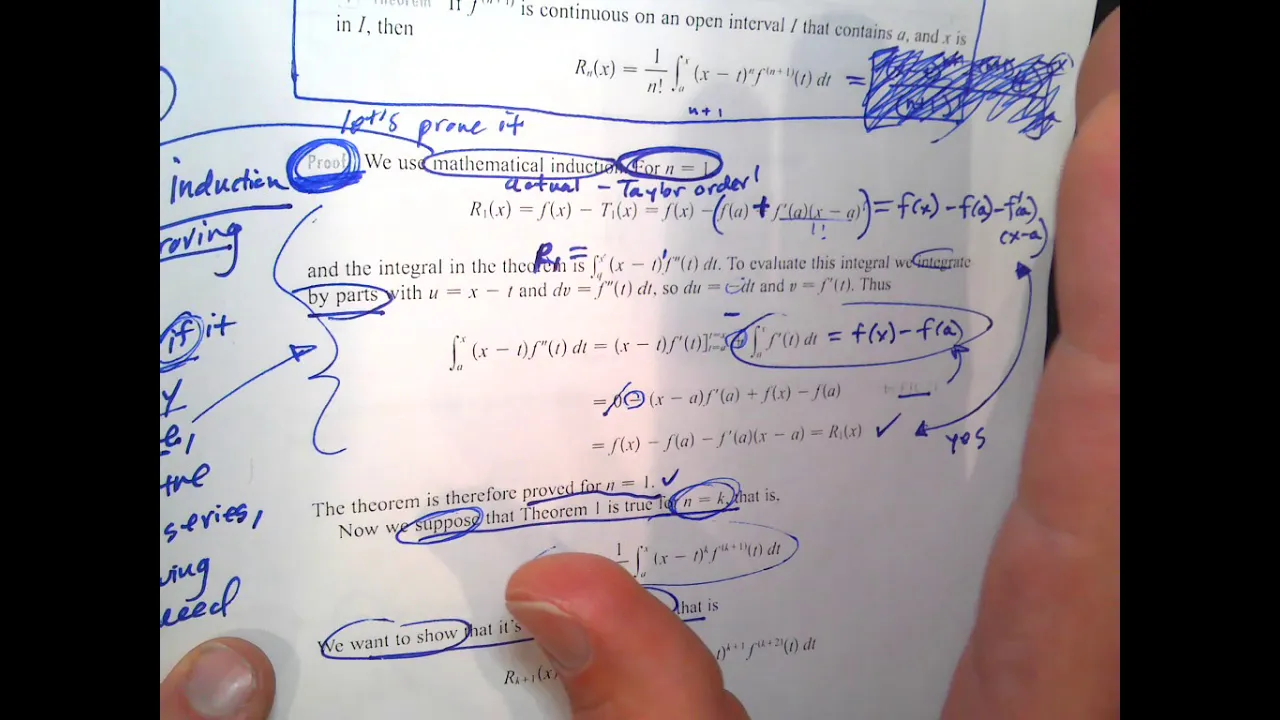 Theorem If f⁽ⁿ⁺¹⁾ is continuous on an open interval I that contains a, and x is
in I, then
Rₙ(x) = 1/n! ∫ₐˣ (x − t)ⁿ f⁽ⁿ⁺¹⁾(t) dt =
n+1
let's prove it
Proof We use mathematical induction. For n = 1
induction
actual - Taylor order 1
R₁(x) = f(x) − T₁(x) = f(x) − (f(a) + f′(a)(x − a)¹/1!) = f(x) − f(a) − f′(a)
(x-a)
roving
R₁ =
and the integral in the theorem is ∫ₐˣ (x − t)¹ f″(t) dt. To evaluate this integral we integrate
by parts with u = x − t and dv = f″(t) dt, so du = −dt and v = f′(t). Thus
if it
∫ₐˣ (x − t)f″(t) dt = (x − t)f′(t)]ₜ₌ₐᵗ⁼ˣ + ∫ₐˣ f′(t) dt = f(x) − f(a)
y
= 0 − (x − a)f′(a) + f(x) − f(a)
= f(x) − f(a) − f′(a)(x − a) = R₁(x) ✓
yes
the
The theorem is therefore proved for n = 1. ✓
series,
Now we suppose that Theorem 1 is true for n = k, that is,
∫ₐˣ (x − t)ᵏ f⁽ᵏ⁺¹⁾(t) dt
ving
need
We want to show that it's that is
Rₖ₊₁(x) t)ᵏ⁺¹ f⁽ᵏ⁺²⁾(t) dt